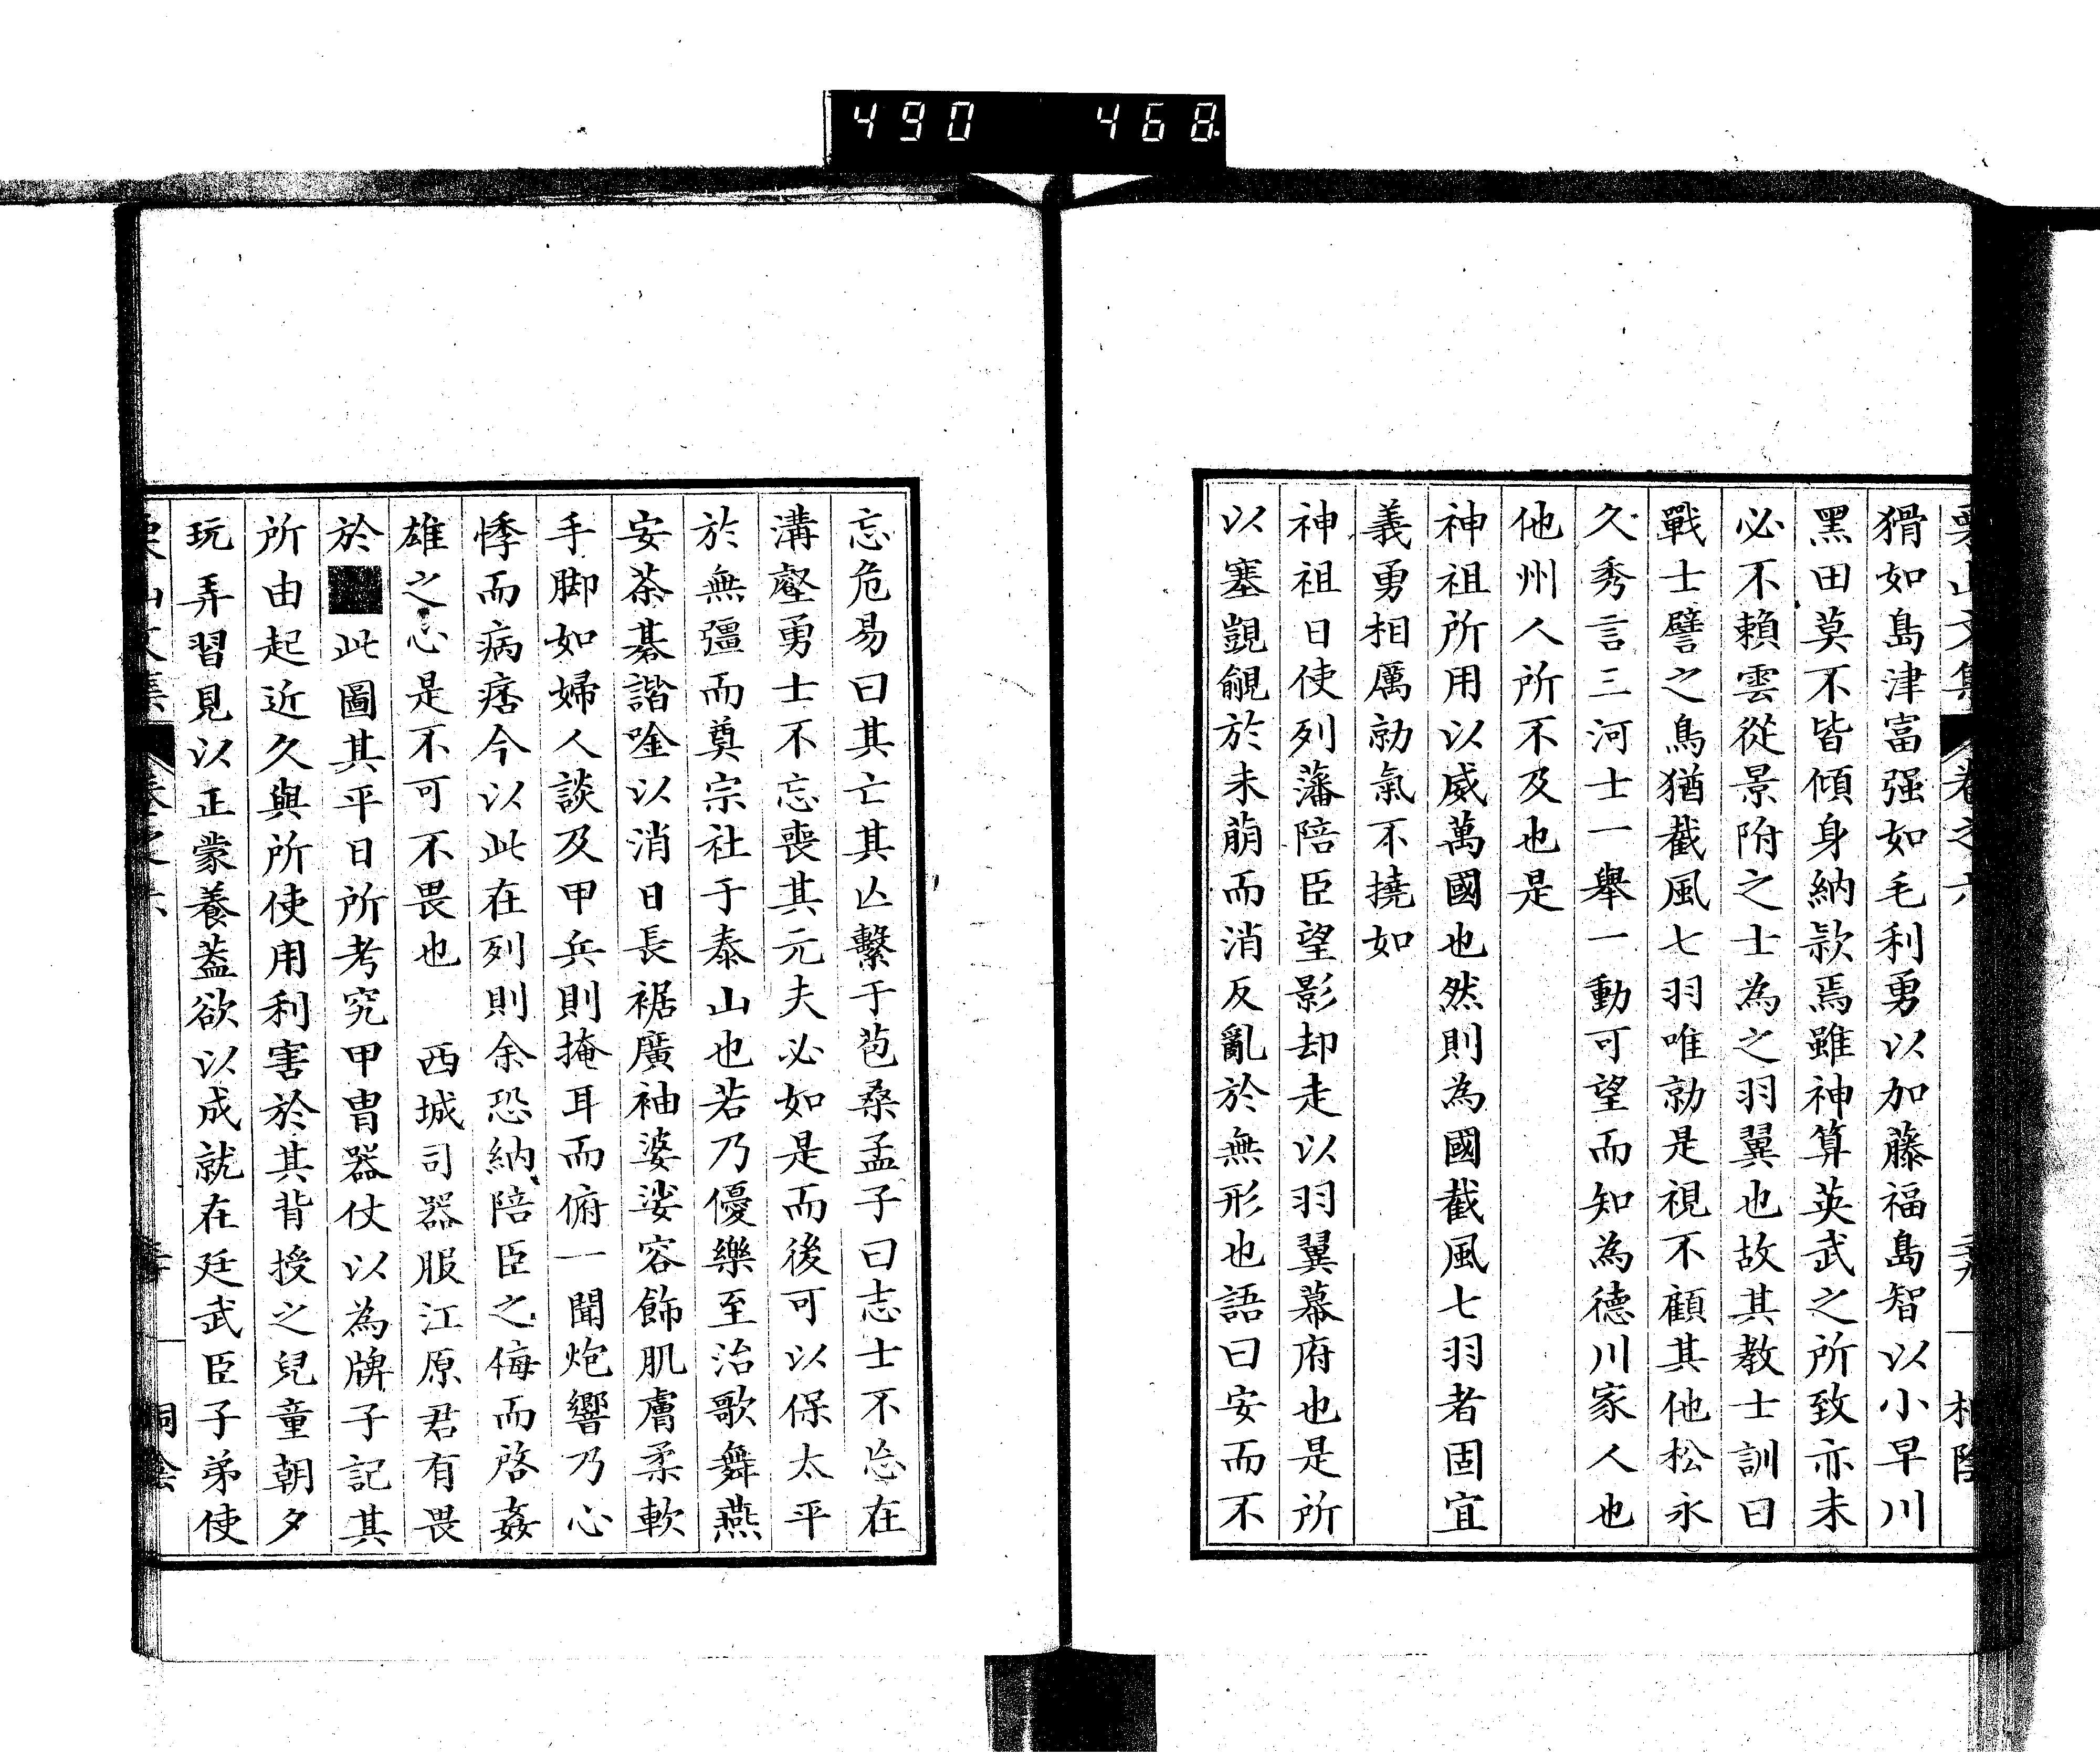 490 468
栗山文集 卷之六
猾如島津富强如毛利勇以加藤福島智以小早川
黑田莫不皆傾身納款焉雖神算英武之所致亦未
必不賴雲從景附之士為之羽翼也故其教士訓曰
戰士譬之鳥猶截風七羽唯勍是視不顧其他松永
久秀言三河士一舉一動可望而知為德川家人也
他州人所不及也是
神祖所用以威萬國也然則為國截風七羽者固宜
義勇相厲勍氣不撓如
神祖日使列藩陪臣望影却走以羽翼幕府也是所
以塞覬覦於未萠而消反亂於無形也語曰安而不
忘危易曰其亡其亾繫于苞桑孟子曰志士不忘在
溝壑勇士不忘喪其元夫必如是而後可以保太平
於無彊而奠宗社于泰山也若乃優樂至治歌舞燕
安茶碁諧唫以消日長裾廣袖婆娑容飾肌膚柔軟
手脚如婦人談及甲兵則掩耳而俯一聞炮響乃心
悸而病痞今以此在列則余恐納陪臣之侮而啓姦
雄之心是不可不畏也　西城司器服江原君有畏
於■此圖其平日所考究甲冑器仗以為牌子記其
所由起近久與所使用利害於其背授之兒童朝夕
玩弄習見以正蒙養蓋欲以成就在廷武臣子弟使
栗山文集 卷之六